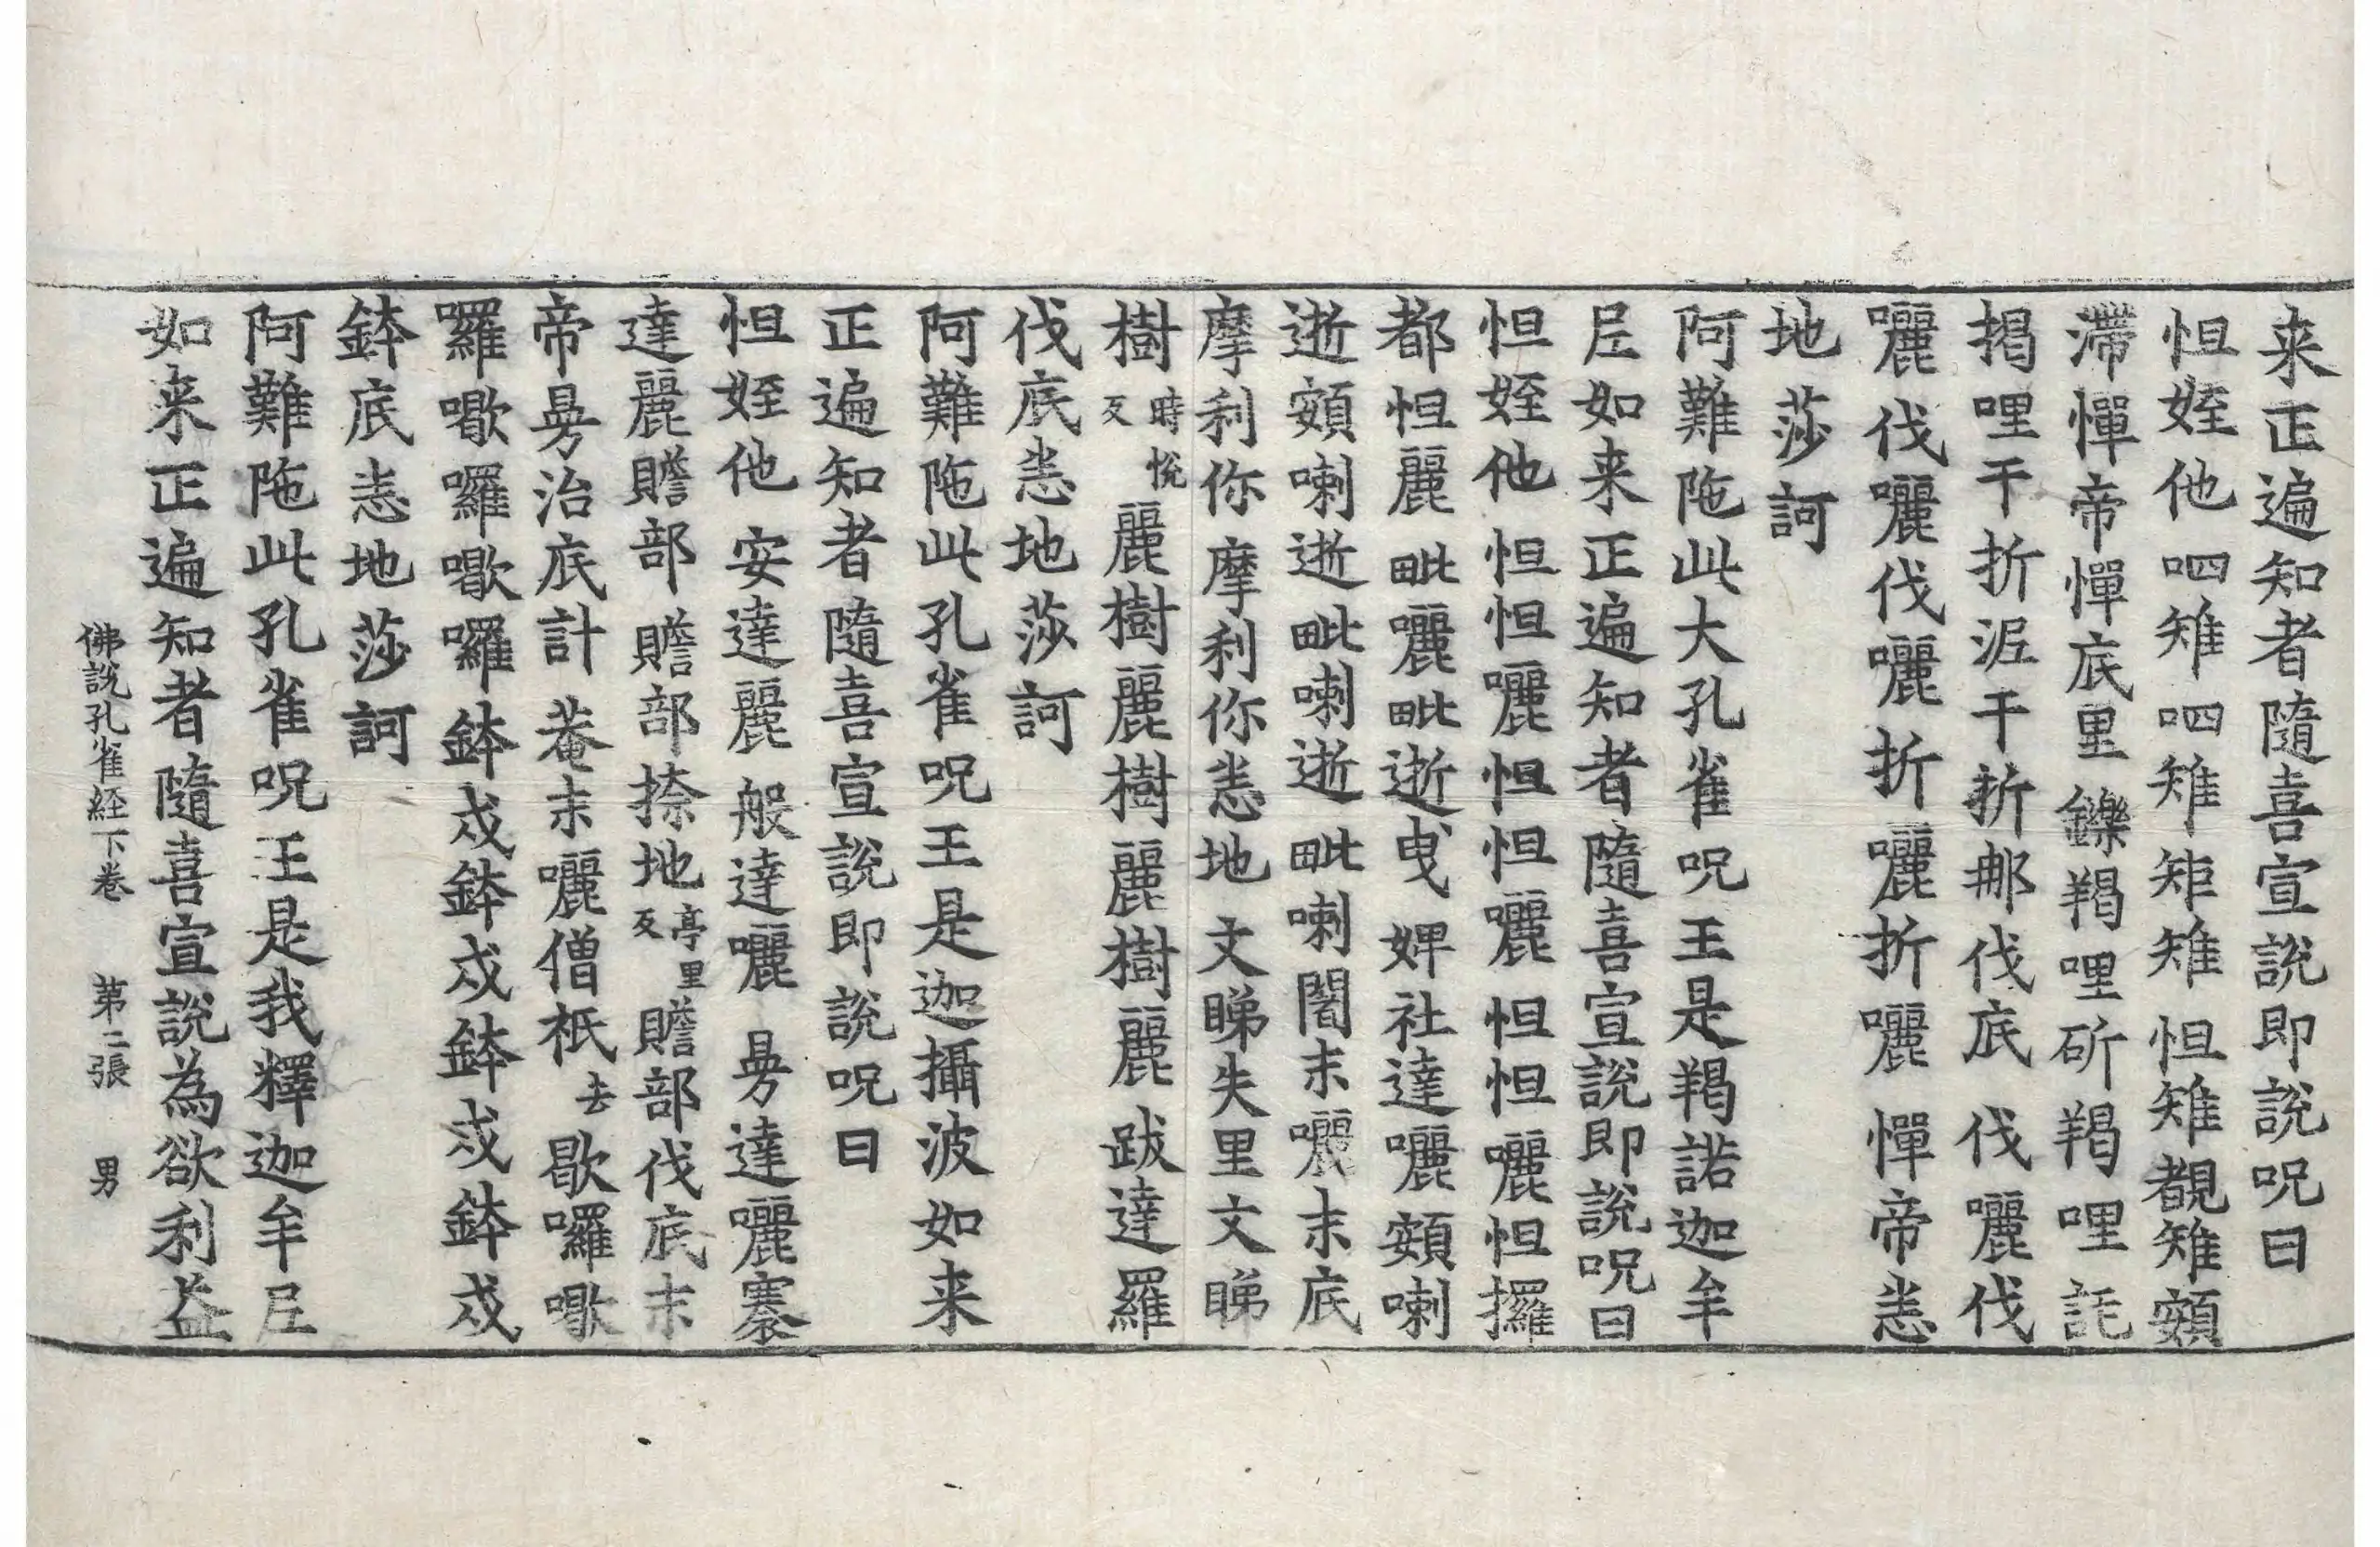 来正遍知者隨喜宣說即說呪曰
怛姪他呬雉呬雉矩雉怛雉覩雉頞
滯憚帝憚底里鑠羯哩斫羯哩託
揭哩干折泥干折那伐底伐囇伐
囇伐囇伐囇折囇折囇憚帝悉
地莎訶
阿難陁此大孔雀呪王是羯諾迦牟
尼如来正遍知者隨喜宣說即說呪曰
怛姪他怛怛囇怛怛囇怛怛囇怛攞
都怛麗毗囇毗逝曳婢社達囇頞喇
逝頞喇逝毗喇逝毗喇闍末囇末底
摩利你摩利你悉地文睇失里文睇
樹時悅反麗樹麗樹麗樹麗跋達羅
伐底悉地莎訶
阿難陁此孔雀呪王是迦攝波如来
正遍知者隨喜宣說即說呪曰
怛姪他安達麗般達囇曼達囇騫
達麗贍部贍部捺地亭里反贍部伐底末
帝曼治底計菴末囇僧祇去歇囉㘉
囉㘉囉㘉囉鉢成鉢成鉢成鉢成
鉢底悉地莎訶
阿難陁此孔雀呪王是我釋迦牟尼
如来正遍知者隨喜宣說為欲利益
佛說孔雀経下卷 第二張 男